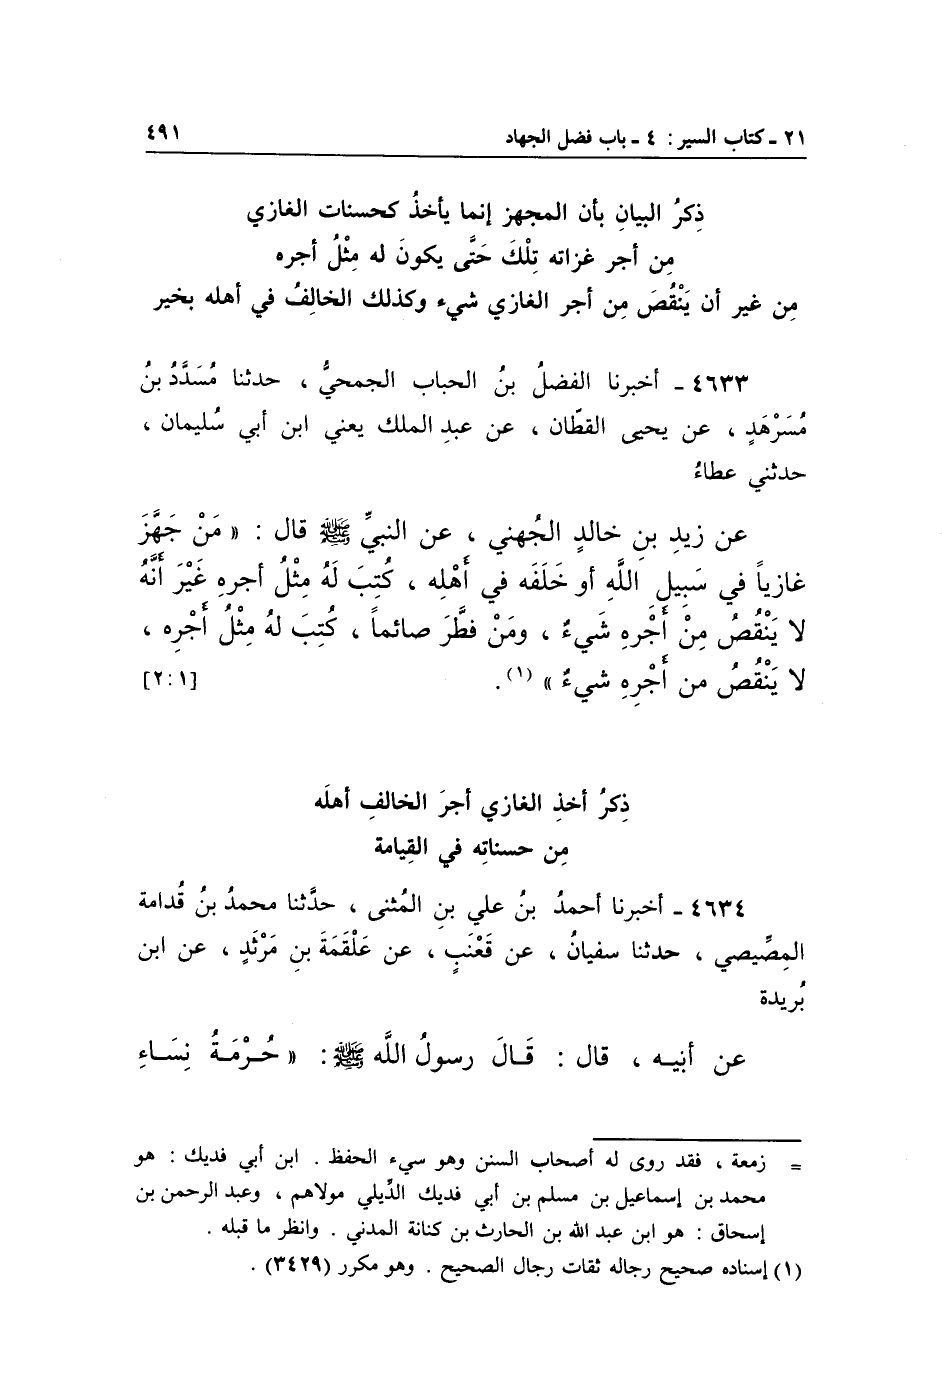 ٢١ ـ كتاب السير : ٤ ـ باب فضل الجهاد ٤٩١
ذِكرُ البيانِ بأن المجهز إنما يأخذُ كحسنات الغازي
مِن أجر غزاته تِلْكَ حَتَّى يكونَ له مِثْلُ أجره
مِن غير أن يَنْقُصَ مِن أجر الغازي شيء وكذلك الخالِفُ في أهله بخير
٤٦٣٣ ـ أخبرنا الفضلُ بنُ الحباب الجمحيُّ ، حدثنا مُسَدَّدُ بنُ
مُسَرْهَدٍ ، عن يحيى القطّان ، عن عبدِ الملك يعني ابن أبي سُليمان ،
حدثني عطاءُ
عن زيدِ بنِ خالدٍ الجُهني ، عن النبيِّ ﷺ قال : « مَنْ جَهَّزَ
غازياً في سَبِيلِ اللَّهِ أو خَلَفَه في أَهْلِه ، كُتِبَ لَهُ مِثْلُ أجرِهِ غَيْرَ أَنَّهُ
لا يَنْقُصُ مِنْ أَجْرِهِ شَيءٌ ، ومَنْ فطَّرَ صائماً ، كُتِبَ لهُ مِثْلُ أَجْرِه ،
لا يَنْقُصُ من أَجْرِهِ شيءٌ » (١) . [٢:١]
ذِكرُ أخذِ الغازي أجرَ الخالفِ أهلَه
مِن حسناتِه في القِيامة
٤٦٣٤ ـ أخبرنا أحمدُ بنُ علي بنِ المُثنى ، حدَّثنا محمدُ بنُ قُدامة
المِصِّيصي ، حدثنا سفيانُ ، عن قَعْنَبٍ ، عن عَلْقَمَةَ بنِ مَرْثَدٍ ، عن ابن
بُريدة
عن أبيـه ، قال : قَـالَ رسولُ اللَّه ﷺ : « حُـرْمَـةُ نِسَـاءِ
= زمعة ، فقد روى له أصحاب السنن وهو سيء الحفظ . ابن أبي فديك : هو
محمد بن إسماعيل بن مسلم بن أبي فديك الدِّيلي مولاهم ، وعبد الرحمن بن
إسحاق : هو ابن عبد الله بن الحارث بن كنانة المدني . وانظر ما قبله .
(١) إسناده صحيح رجاله ثقات رجال الصحيح . وهو مكرر (٣٤٢٩) .